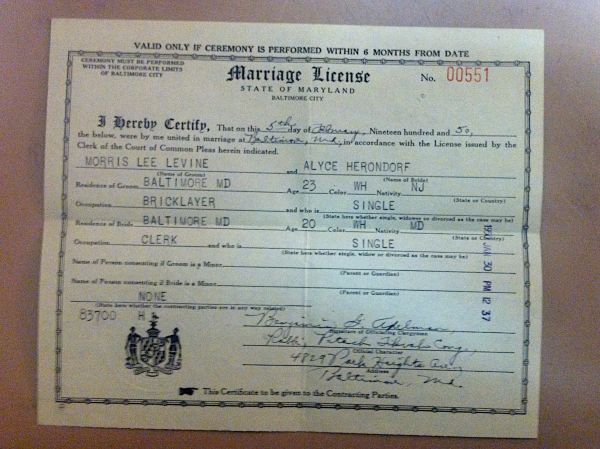 VALID ONLY IF CEREMONY IS PERFORMED WITHIN 6 MONTHS FROM DATE
CEREMONY MUST BE PERFORMED
WITHIN THE CORPORATE LIMITS
OF BALTIMORE CITY
Marriage License
No. 00551
STATE OF MARYLAND
BALTIMORE CITY
I Hereby Certify, That on this 5th day of February, Nineteen hundred and 50,
the below, were by me united in marriage at Baltimore, Md, in accordance with the License issued by the
Clerk of the Court of Common Pleas herein indicated.
MORRIS LEE LEVINE and ALYCE HERONDORF
(Name of Groom) (Name of Bride)
Residence of Groom BALTIMORE MD Age 23 Color WH Nativity NJ
(State or Country)
Occupation BRICKLAYER and who is SINGLE
(State here whether single, widower or divorced as the case may be)
Residence of Bride BALTIMORE MD Age 20 Color WH Nativity MD
(State or Country)
Occupation CLERK and who is SINGLE
(State here whether single, widow or divorced as the case may be)
Name of Person consenting if Groom is a Minor
(Parent or Guardian)
Name of Person consenting if Bride is a Minor
(Parent or Guardian)
NONE
(State here whether the contracting parties are in any way related)
83700 H
Benjamin G. Adelman
Signature of Officiating Clergyman
Petach Tikvah Cong.
Official Character
4829 Park Heights Ave,
Address
Baltimore, Md.
This Certificate to be given to the Contracting Parties.
JAN 30 PM 12 37